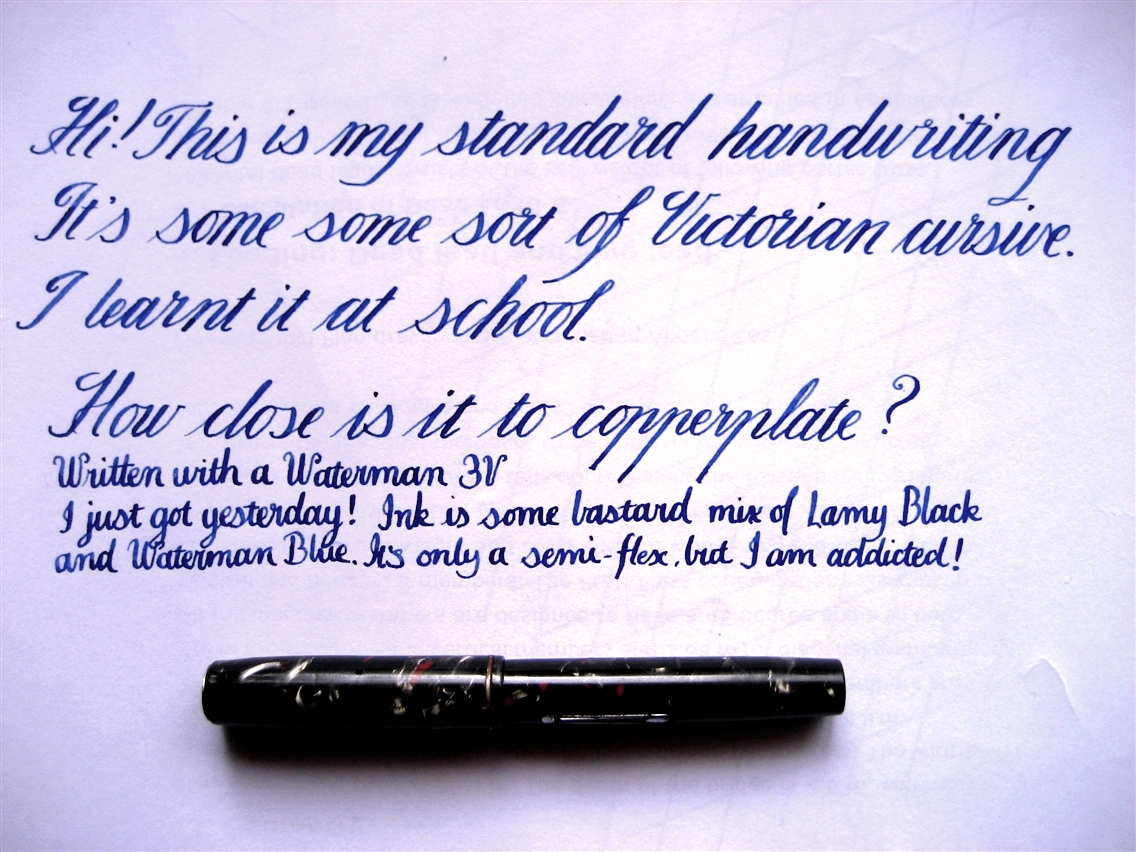 Hi! This is my standard handwriting
It's some some sort of Victorian cursive.
I learnt it at school.
How close is it to copperplate?
Written with a Waterman 3V
I just got yesterday! Ink is some bastard mix of Lamy Black
and Waterman Blue. It's only a semi-flex, but I am addicted!